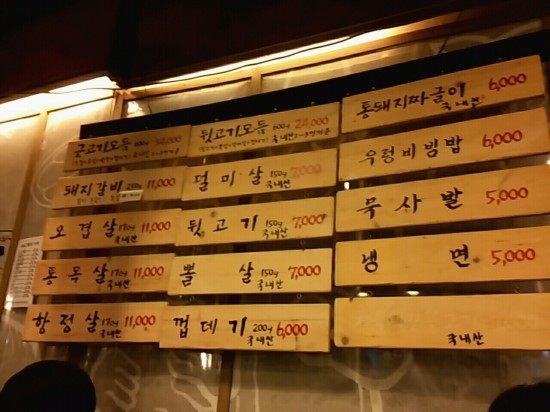 근고기모듬 600g 34,000
돼지갈비 11,000
오겹살 170g 국내산 11,000
통목살 170g 국내산 11,000
항정살 170g 국내산 11,000
뒷고기모듬 600g 국내산 24,000
덜미·살 150g 국내산 7,000
뒷고기 150g 국내산 7,000
뽈살 150g 국내산 7,000
껍데기 200g 국내산 6,000
통돼지짜글이 국내산 6,000
우렁비빔밥 6,000
묵사발 5,000
냉면 5,000
국내산